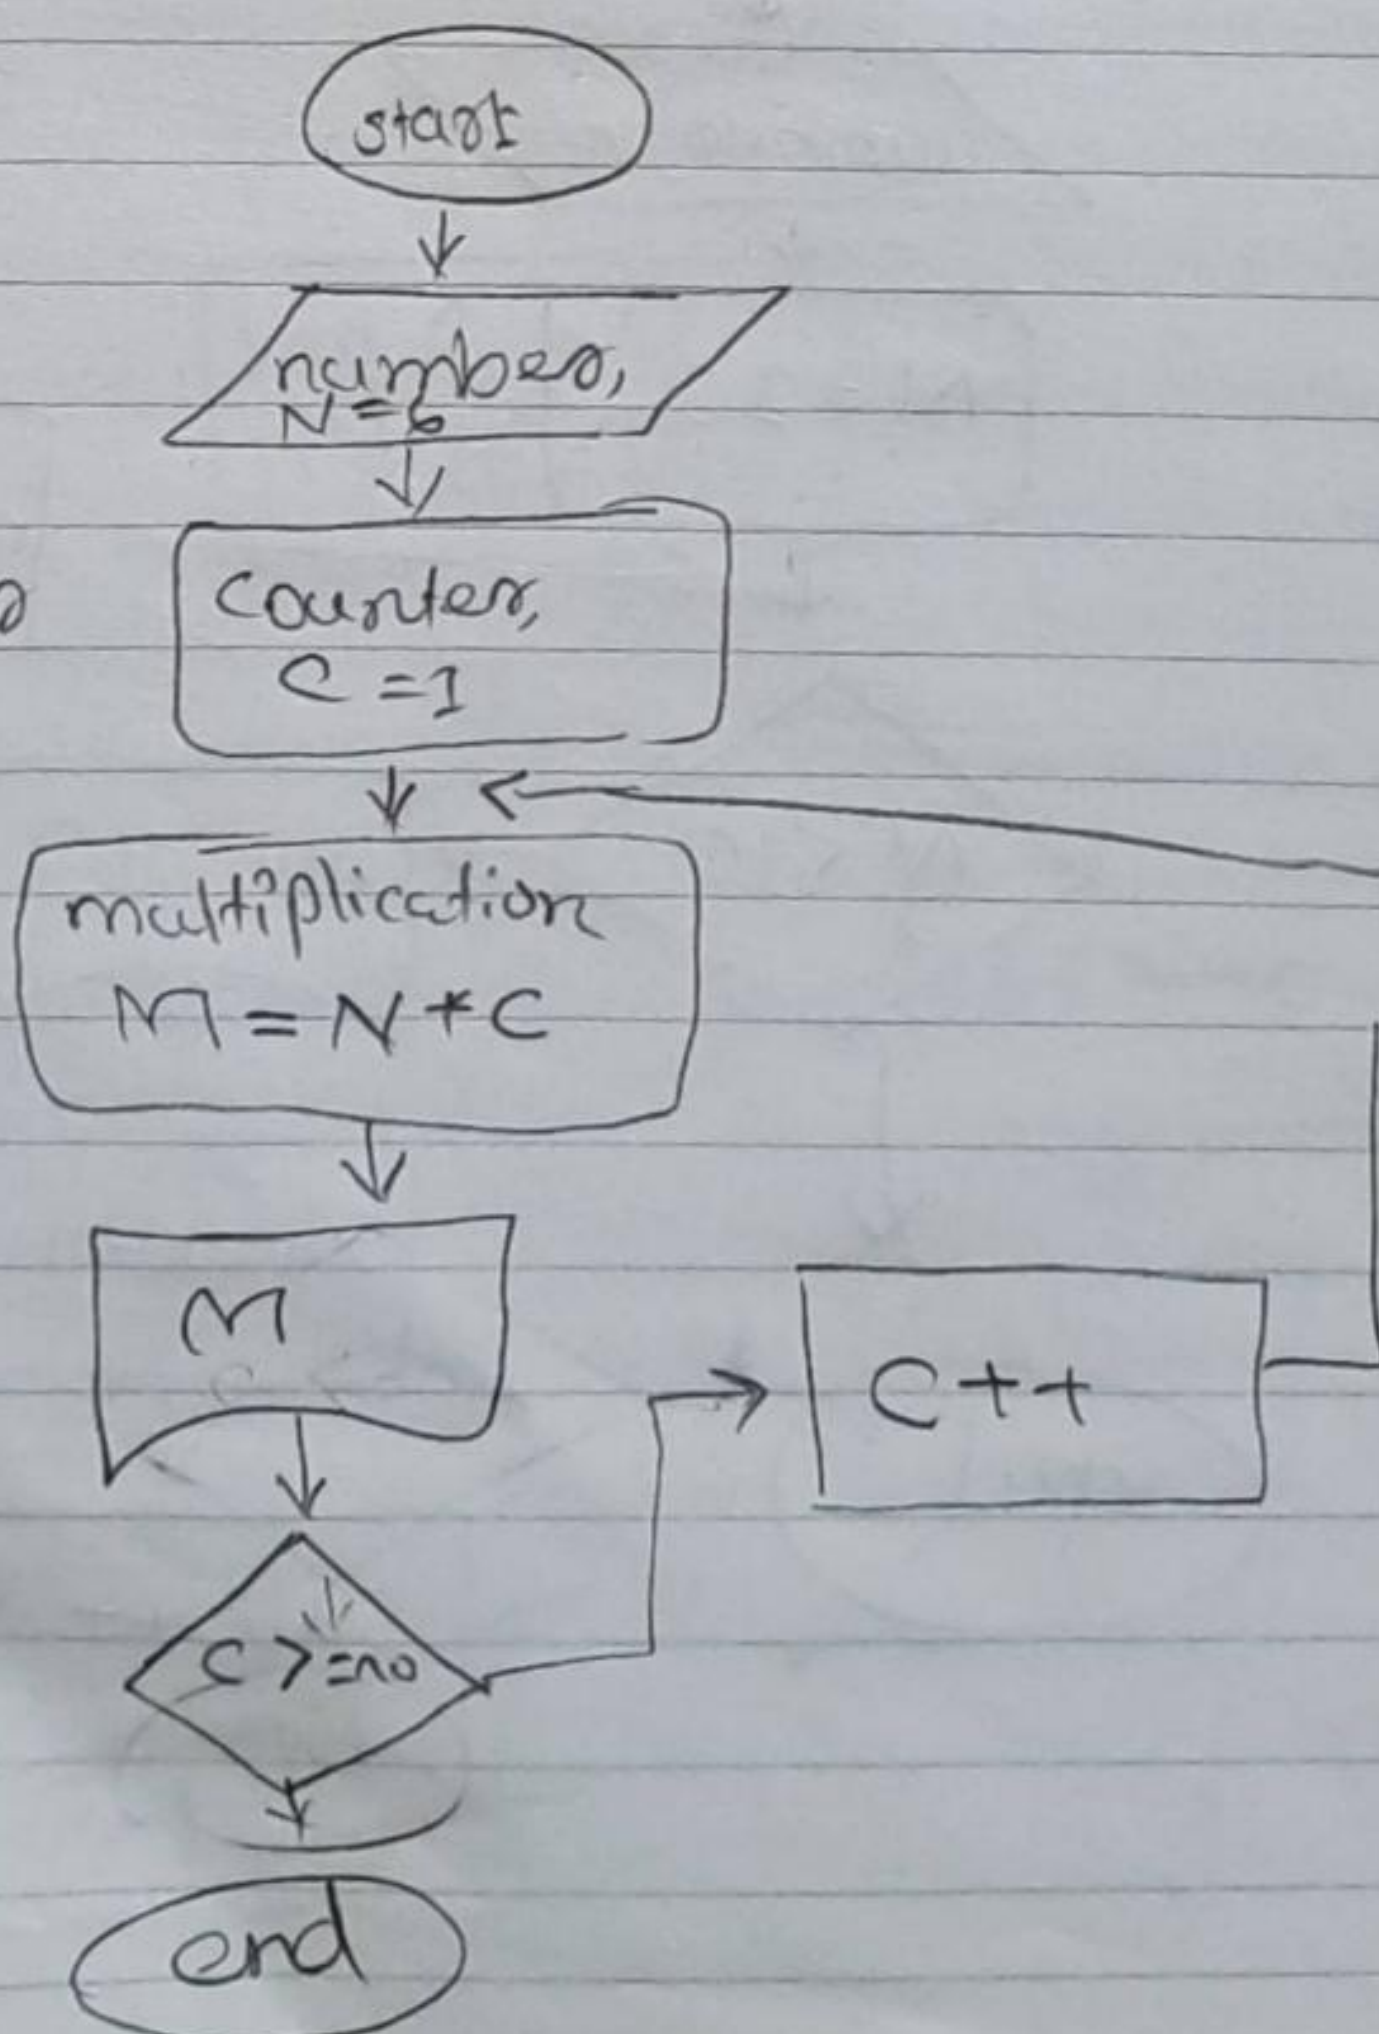 start
number,
N=6
counter,
C=1
multiplication
M=N*C
M
C++
C>=no
end